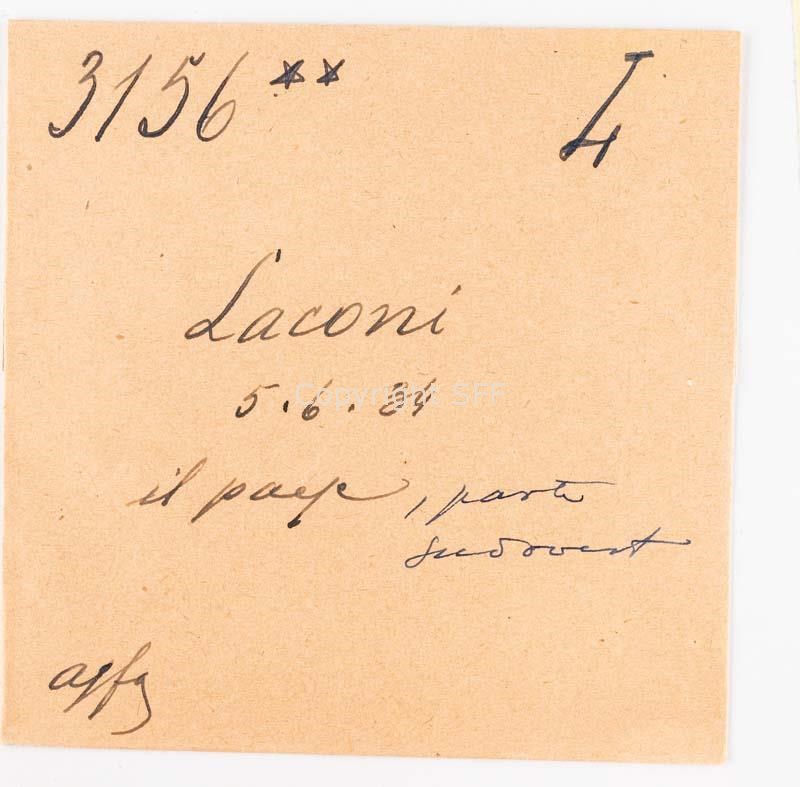 3156 ** I4
Laconi
5.6.24
il paese, parte
sudovest
agfa
Copyright SFF